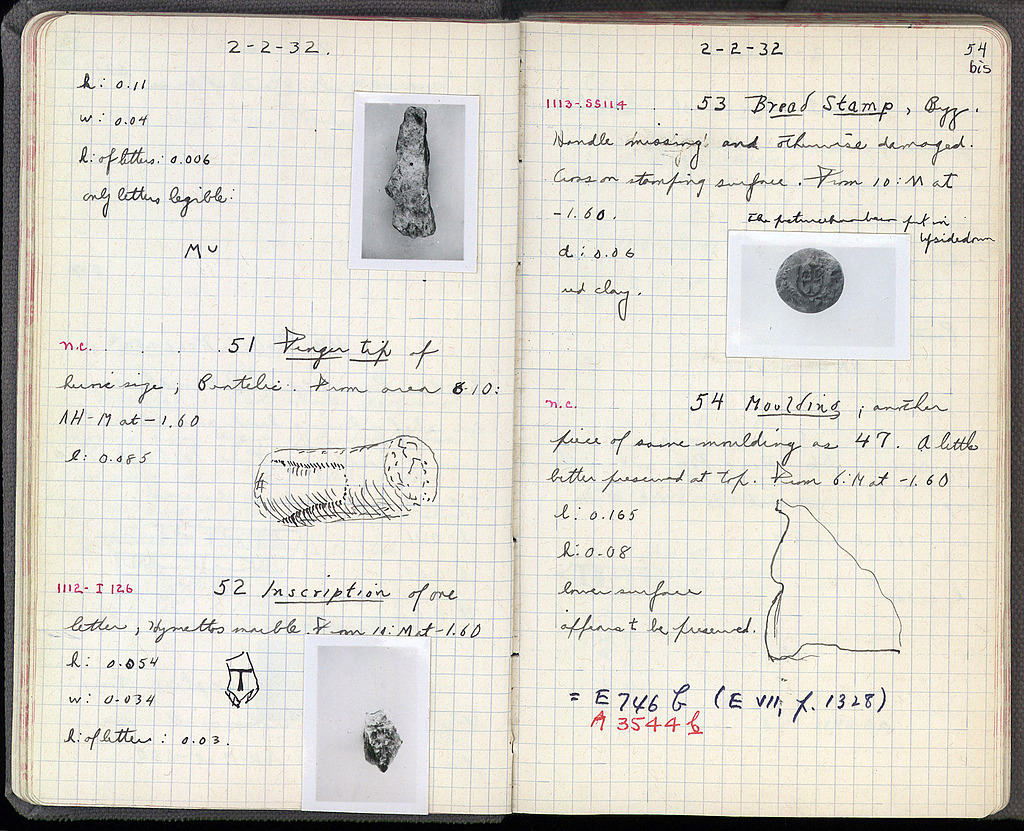 2-2-32.
h: 0.11
w: 0.04
h: of letters: 0.006
only letters legible:
M U
n.c. . . . . . 51 Finger tip of
heroic size; Pentelic. From area 8-10:
ΛH-M at -1.60
l: 0.085
1112- I 126 52 Inscription of one
letter, Hymettos marble. From 10:M at -1.60
h: 0.054
w: 0.034
h: of letters: 0.03.
2-2-32
54
bis
1113-SS114 . . 53 Bread Stamp, Byz.
Handle missing and otherwise damaged.
Cross on stamping surface. From 10:M at
-1.60.
The picture has been put in
upsidedown
d: 0.06
red clay.
n.c. 54 Moulding; another
piece of same moulding as 47. A little
better preserved at top. From 6:M at -1.60
l: 0.165
h: 0.08
lower surface
appears to be preserved.
= E 746 b (E VII, p. 1328)
A 3544 b